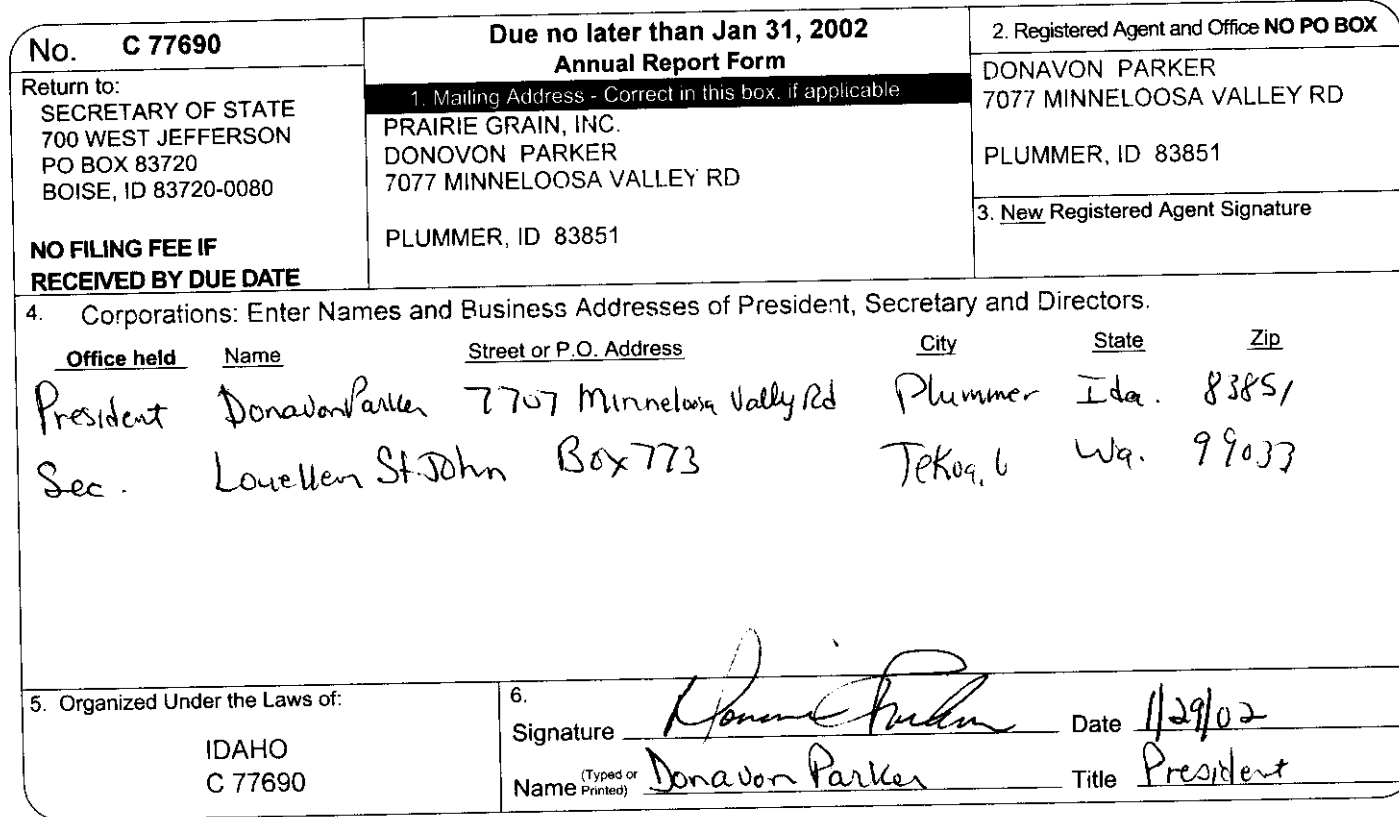 No. C 77690
Return to:
SECRETARY OF STATE
700 WEST JEFFERSON
PO BOX 83720
BOISE, ID 83720-0080
NO FILING FEE IF
RECEIVED BY DUE DATE
Due no later than Jan 31, 2002
Annual Report Form
1. Mailing Address - Correct in this box, if applicable
PRAIRIE GRAIN, INC.
DONOVON PARKER
7077 MINNELOOSA VALLEY RD
PLUMMER, ID 83851
2. Registered Agent and Office NO PO BOX
DONAVON PARKER
7077 MINNELOOSA VALLEY RD
PLUMMER, ID 83851
3. New Registered Agent Signature
4. Corporations: Enter Names and Business Addresses of President, Secretary and Directors.
Office held Name Street or P.O. Address City State Zip
President Donavon Parker 7707 Minneloosa Vally Rd Plummer Ida. 83851
Sec. Louellen St. John Box 773 Tekoa, Wa. 99033
5. Organized Under the Laws of:
IDAHO
C 77690
6.
Signature Date 1/29/02
Name (Typed or Printed) Donavon Parker Title President